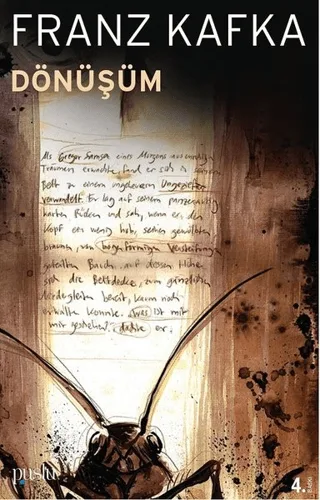 FRANZ KAFKA
DÖNÜŞÜM
Als Gregor Samsa eines Morgens aus unruhigen
Träumen erwachte, fand er sich in seinem
Bett zu einem ungeheueren Ungeziefer
verwandelt. Er lag auf seinem panzerartig
harten Rücken und sah, wenn er den
Kopf ein wenig hob, seinen gewölbten
braunen, von bogenförmigen Versteifungen
geteilten Bauch, auf dessen Höhe
sich die Bettdecke, zum gänzlichen
Niedergleiten bereit, kaum noch
erhalten konnte. Was ist mit
mir geschehen?, dachte er.
puslu
4.